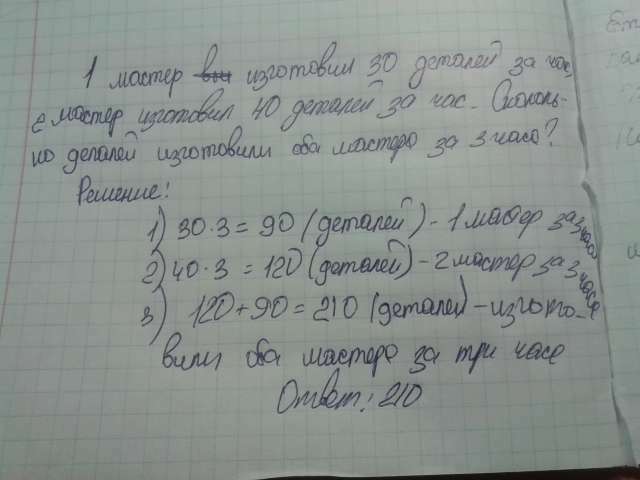 1 мастер изготовил 30 деталей за час,
2 мастер изготовил 40 деталей за час. Сколь-
ко деталей изготовили оба мастера за 3 часа?
Решение:
1) 30·3=90 (деталей) - 1 мастер за 3 часа
2) 40·3=120 (деталей) - 2 мастер за 3 часа
3) 120+90=210 (деталей) - изгото-
вили оба мастера за три часа
Ответ: 210